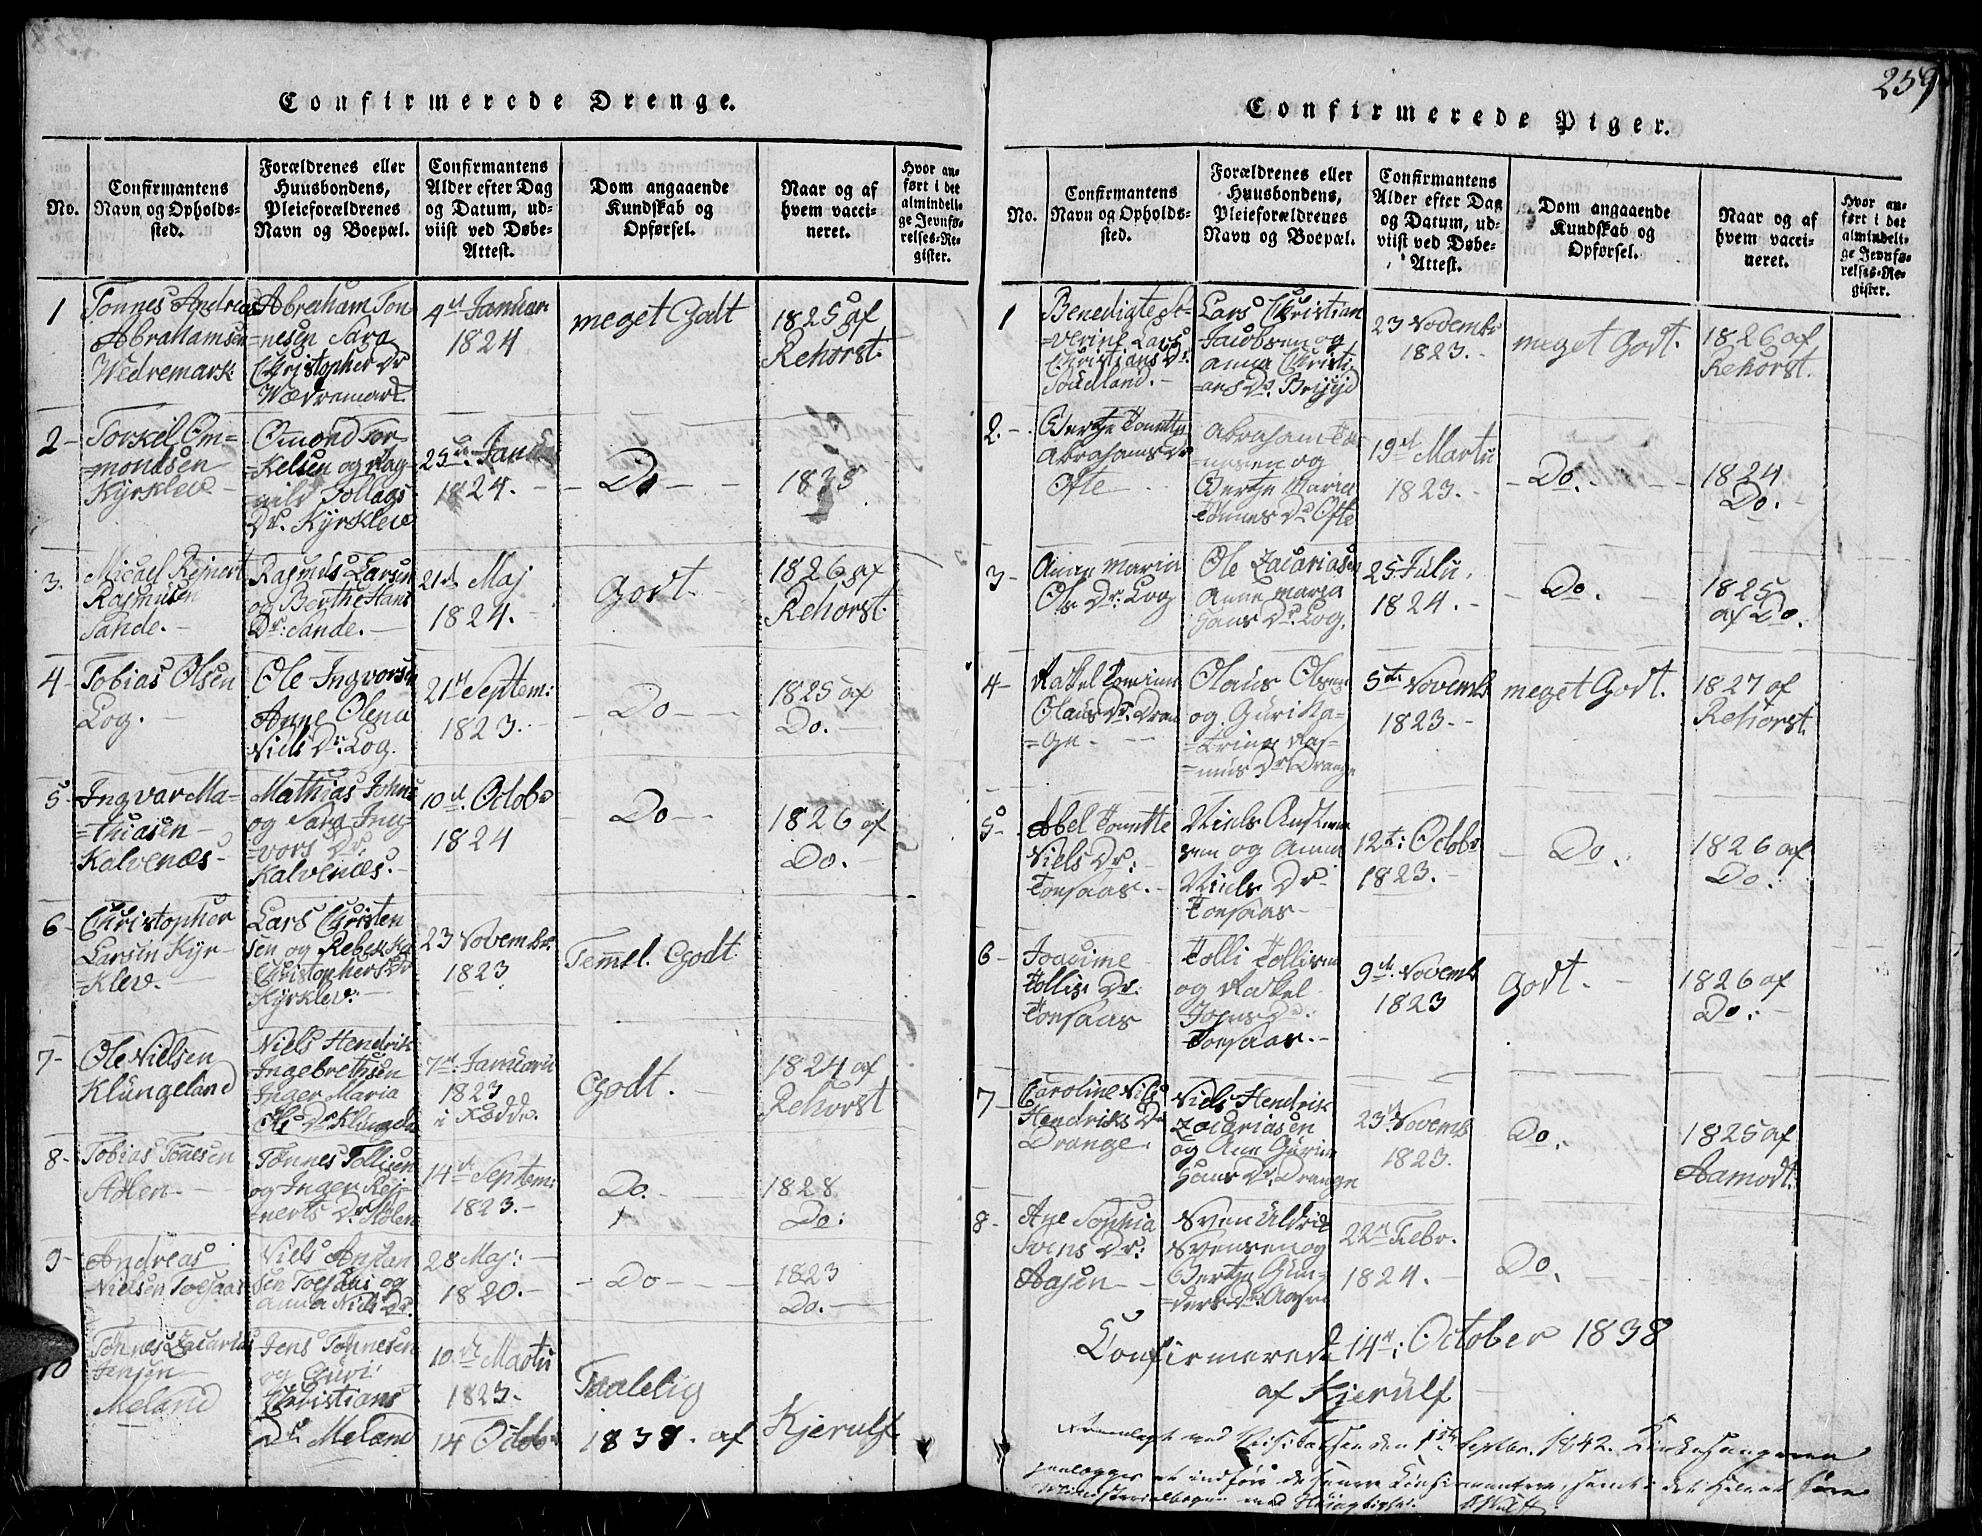 259
Confirmerede Drenge.
No.
Confirmantens
Navn og Opholds-
sted.
Forældrenes eller
Huusbondens,
Pleieforældrenes
Navn og Boepæl.
Confirmantens
Alder efter Dag
og Datum, ud-
viist ved Døbe-
Attest.
Dom angaaende
Kundskab og
Opførsel.
Naar og af
hvem vacci-
neret.
Hvor an-
ført i det
almindeli-
ge Jevnfø-
relses-Re-
gister.
1
Tønnes Andreas
Abrahamsen
Wedremark
Abreham Tøn-
=nesen Sara
Christopher Dr
Wædremark
4de Januar
1824
meget Godt
1825 af
Rehorst.
2-
Torkel Om=
=mondsen
Kyrklev -
Omond Tor-
=Kelsen og Rag-
=nild Tollags
Dr. Kyrklev
25de Janu
1824. -
- Do - -
1825
3.
Micael Rejnert
Rasmusen
Sande. -
Rasmus Larsen
og Berthe Hans
Dr: Sande. -
21de Maj
1824. -
Godt. -
1826 af
Rehorst.
4-
Tobias Olsen
Log. -
Ole Ingvorsen
Anne Olena
Niels Dr. Log.
21de Septem:
1823. -
- Do - -
1825 af
Do. -
5-
Ingvar Ma=
=thiasen -
Kalvenæs -
Mathias Johns
og Sara Ing
=vors Dr.
Kalvenæs. -
10de Octobr
1824
- Do - -
1826 af
Do. -
6-
Christopher
Larsen Kyr-
Klev. -
Lars Christen
sen og Rebekka
Christophers Dr
Kyrklev: -
23 Novembr.
1823
Temmel. Godt.
7-
Ole Nielsen
Klungeland
Niels Hendrik
Ingebrethsen
Inger Maria
Ols Dr Klungela
7de Januarii
1823
i Fædde.
Godt. -
1824 af
Rehorst
8-
Tobias Tønesen
Stølen -
Tønnes Tollisen
og Inger Rej-
=nerts Dr Stølen
14de Septem:
1823. -
Do. -
1828
Do:
9-
Andreas
Nielsen Toesaas
Niels Austen
sen Toesaas og
Anna Niels Dr.
28 Maj: -
1820. -
- Do - -
1823
Do. -
10
Tønnes Zacarias
Jensen -
Meland
Jens Tønnesen
og Guri
Christians
Dr Meland
10de Martii
1823 -
Taalelig
14 Octobr
1838. af
Kjerulf
Confirmerede Piger.
No.
Confirmantens
Navn og Opholds-
sted.
Forældrenes eller
Huusbondens,
Pleieforældrenes
Navn og Boepæl.
Confirmantens
Alder efter Dag
og Datum, ud-
viist ved Døbe-
Attest.
Dom angaaende
Kundskab og
Opførsel.
Naar og af
hvem vacci-
neret.
Hvor an-
ført i det
almindeli-
ge Jevnfø-
relses-Re-
gister.
1
=verine Lars
Christians Dr.
Lars Christian
Jacobsen og
Anna Christi
=ans Dr.
23 Novembr
1823. -
meget Godt.
1826 af
Rehorst.
2. -
Bertje Tonette
Abrahams Dr
Ofte -
Abraham Tøn
=nesen og
Bertje Maria
Tønnes Dr Ofte
19de Martii
1823. -
- Do. - -
1824
Do. -
3 -
Anne Maria
Ols Dr: Log
Ole Zacariasen
Anne Maria
Hans Dr. Log.
25 Julii.
1824. -
- Do. -
1825
af Do.
4-
Olaus Dr. Dran
=ge. - -
Olaus Olsen
og Guri Ka=
=trine Ras=
=mus Dr. Drange
5te Novembr
1823. -
meget Godt.
1827 af
Rehorst.
5 -
Abel Tonette
Niels Dr: -
Toesaas. -
Niels Austen
sen og Anna
Niels Dr.
Toesaas -
12te: Octobr
1823. -
- Do. -
1826 af
Do. -
6 -
Joacime
Tollis Dr:
Toesaas
Tolli Tollisen
og Rakel
Johns Dr.
Toesaas. -
9de Novembr
1823
Godt. -
1826 af
Do: -
7 -
Caroline Niels
Hendriks Dr
Drange.
Niels Hendrik
Zacariasen
og Ane Gurine
Hans Dr. Drange
23de Novembr
1823.
Do.
1825 af
Aamodt.
8 -
Ane Sophia
Svens Dr:
Aasen - -
Sven Uldrik
Svensen og
Bertje Gun=
=ders Dr. Aasen
22de Febr.
1824. -
Do. -
Confirmerede 14de: October 1838
af Kjerulf
Fremlagt ved Visitatsen den 1ste Septbr. 1842. Kirkesangeren
paalægges at indføre de senere Confirmanter, samt i det Hele at føre
Ministerialbogen med Nøjagtighed.